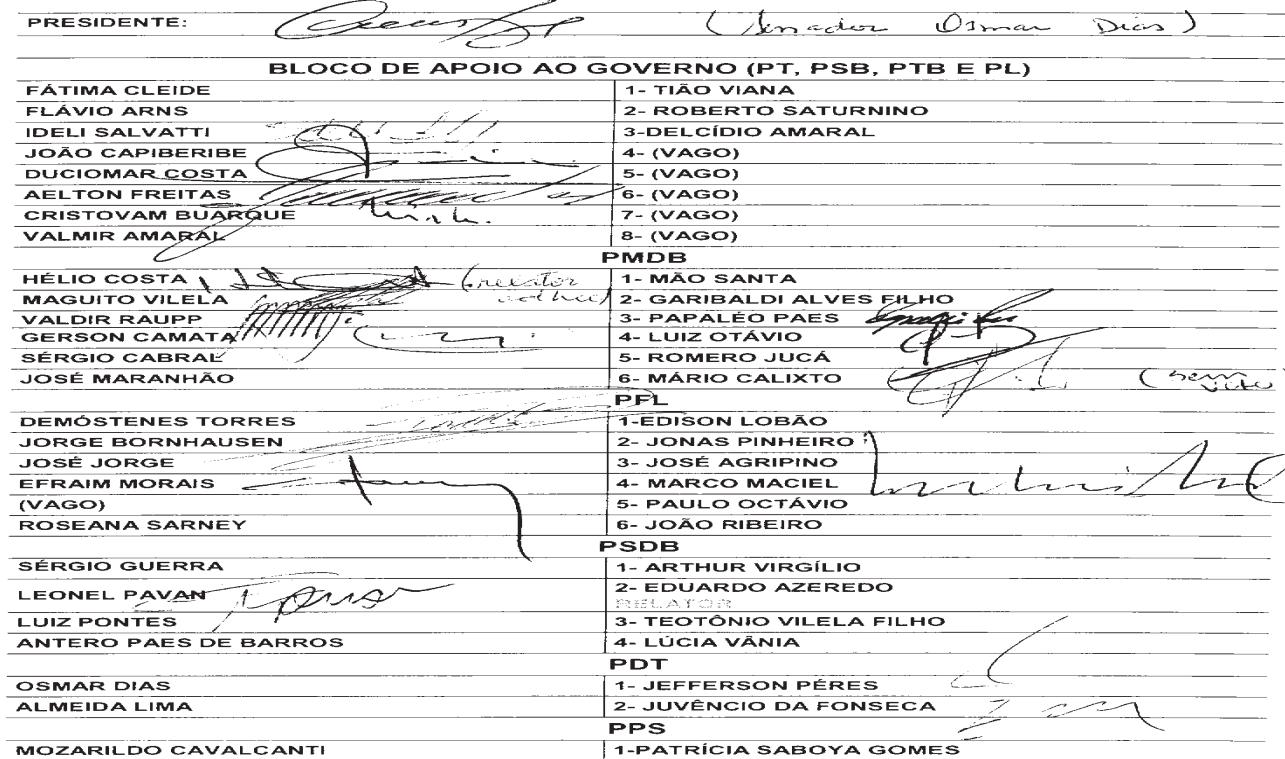 PRESIDENTE: (Senador Osmar Dias)
BLOCO DE APOIO AO GOVERNO (PT, PSB, PTB E PL)
FÁTIMA CLEIDE 1- TIÃO VIANA
FLÁVIO ARNS 2- ROBERTO SATURNINO
IDELI SALVATTI 3-DELCÍDIO AMARAL
JOÃO CAPIBERIBE 4- (VAGO)
DUCIOMAR COSTA 5- (VAGO)
AELTON FREITAS 6- (VAGO)
CRISTOVAM BUARQUE 7- (VAGO)
VALMIR AMARAL 8- (VAGO)
PMDB
HÉLIO COSTA (relator 1- MÃO SANTA
MAGUITO VILELA ad hoc) 2- GARIBALDI ALVES FILHO
VALDIR RAUPP 3- PAPALÉO PAES
GERSON CAMATA 4- LUIZ OTÁVIO
SÉRGIO CABRAL 5- ROMERO JUCÁ
JOSÉ MARANHÃO 6- MÁRIO CALIXTO (sem voto)
PFL
DEMÓSTENES TORRES 1-EDISON LOBÃO
JORGE BORNHAUSEN 2- JONAS PINHEIRO
JOSÉ JORGE 3- JOSÉ AGRIPINO
EFRAIM MORAIS 4- MARCO MACIEL
(VAGO) 5- PAULO OCTÁVIO
ROSEANA SARNEY 6- JOÃO RIBEIRO
PSDB
SÉRGIO GUERRA 1- ARTHUR VIRGÍLIO
LEONEL PAVAN 2- EDUARDO AZEREDO
RELATOR
LUIZ PONTES 3- TEOTÔNIO VILELA FILHO
ANTERO PAES DE BARROS 4- LÚCIA VÂNIA
PDT
OSMAR DIAS 1- JEFFERSON PÉRES
ALMEIDA LIMA 2- JUVÊNCIO DA FONSECA
PPS
MOZARILDO CAVALCANTI 1-PATRÍCIA SABOYA GOMES